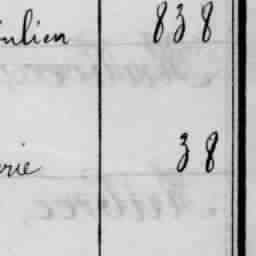 ulien 838
erie 38